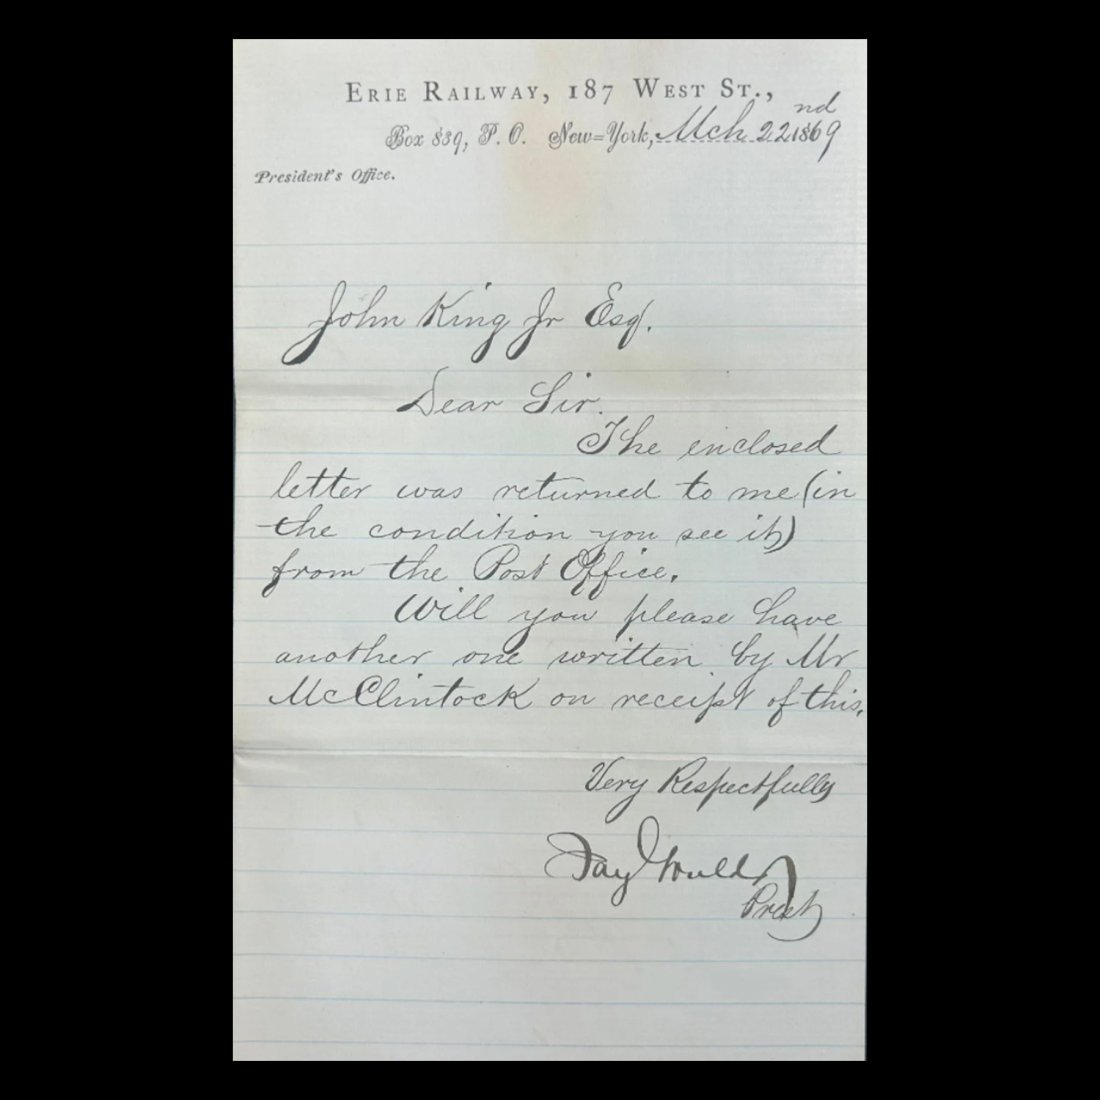 ERIE RAILWAY, 187 WEST ST.,
Box 839, P. O. New=York, Mch 22nd 1869
President's Office.
John King Jr Esq.
Dear Sir.
The enclosed
letter was returned to me (in
the condition you see it)
from the Post Office.
Will you please have
another one written by Mr
McClintock on receipt of this.
Very Respectfully
Jay Gould
Prest